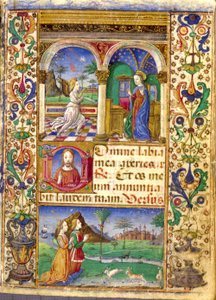 Domine labia
mea aperies
Et os me
um annuntia
bit laudem tuam. Versus